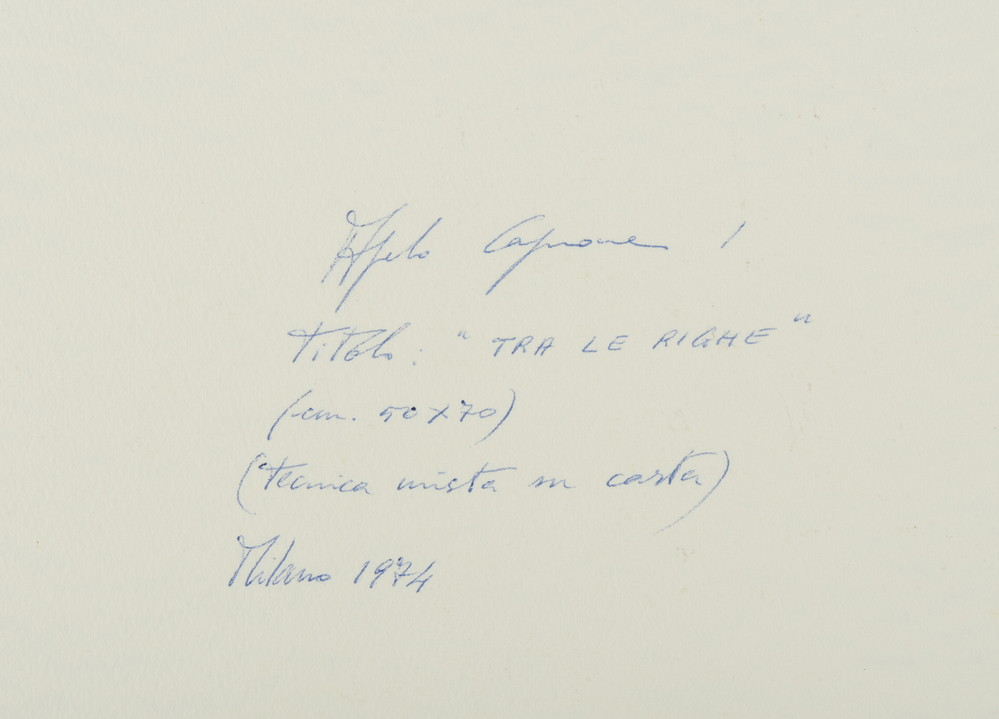 Capone
Titolo: "TRA LE RIGHE"
(cm. 50x70)
(tecnica mista su carta)
Milano 1974